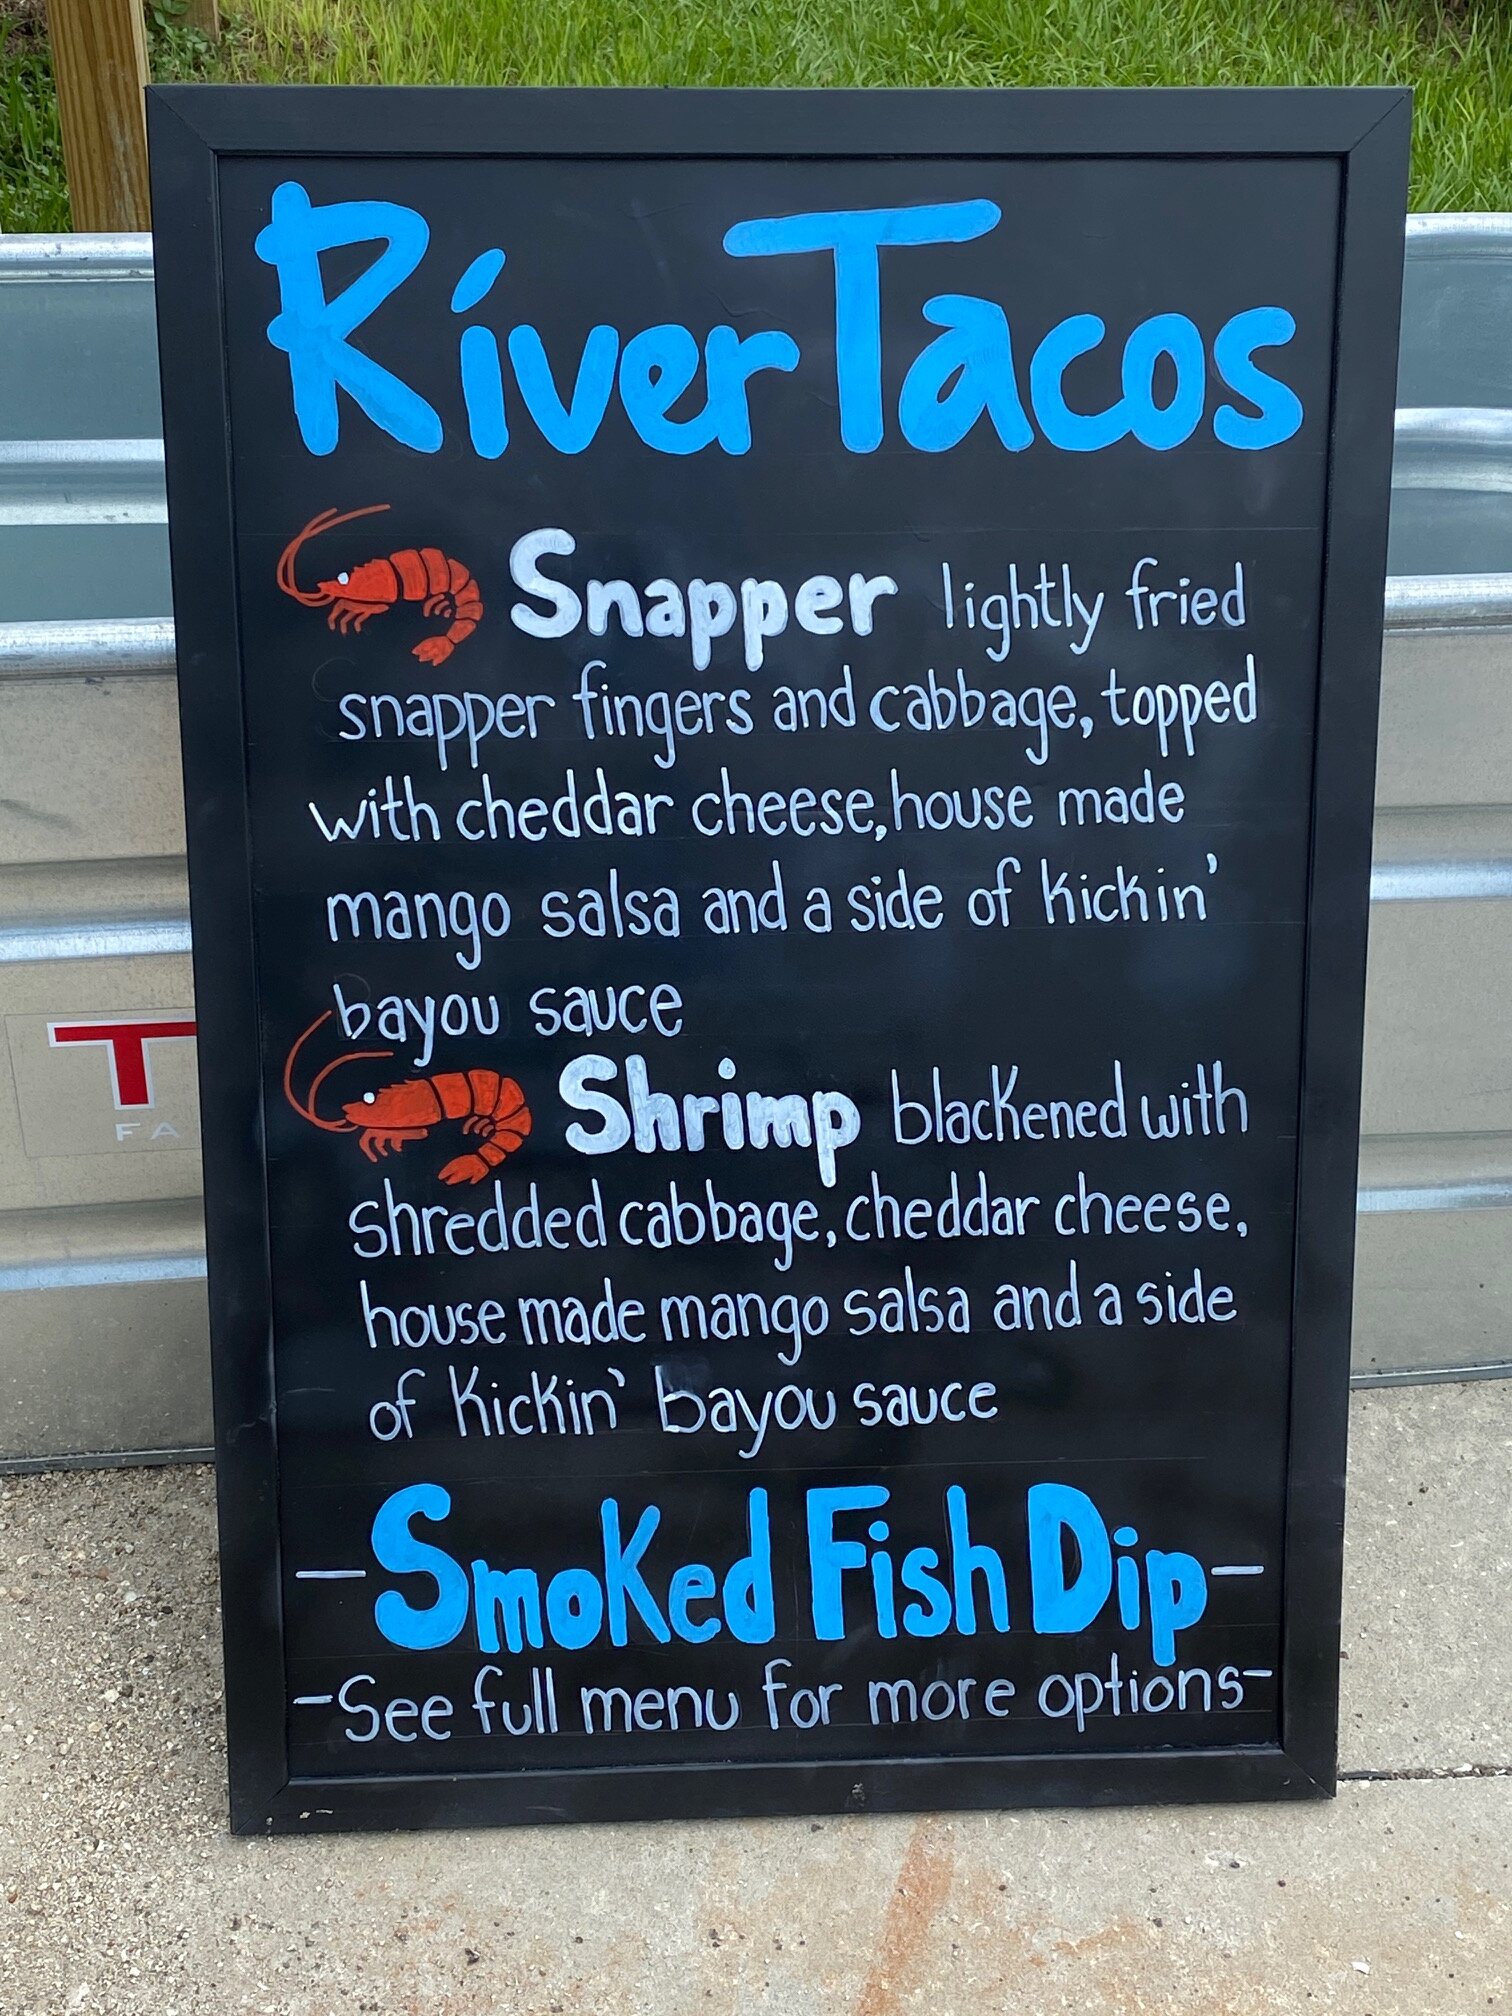 River Tacos
Snapper lightly fried
snapper fingers and cabbage, topped
with cheddar cheese, house made
mango salsa and a side of kickin'
bayou sauce
Shrimp blackened with
shredded cabbage, cheddar cheese,
house made mango salsa and a side
of kickin' bayou sauce
-Smoked Fish Dip-
-See full menu for more options-
T
FA